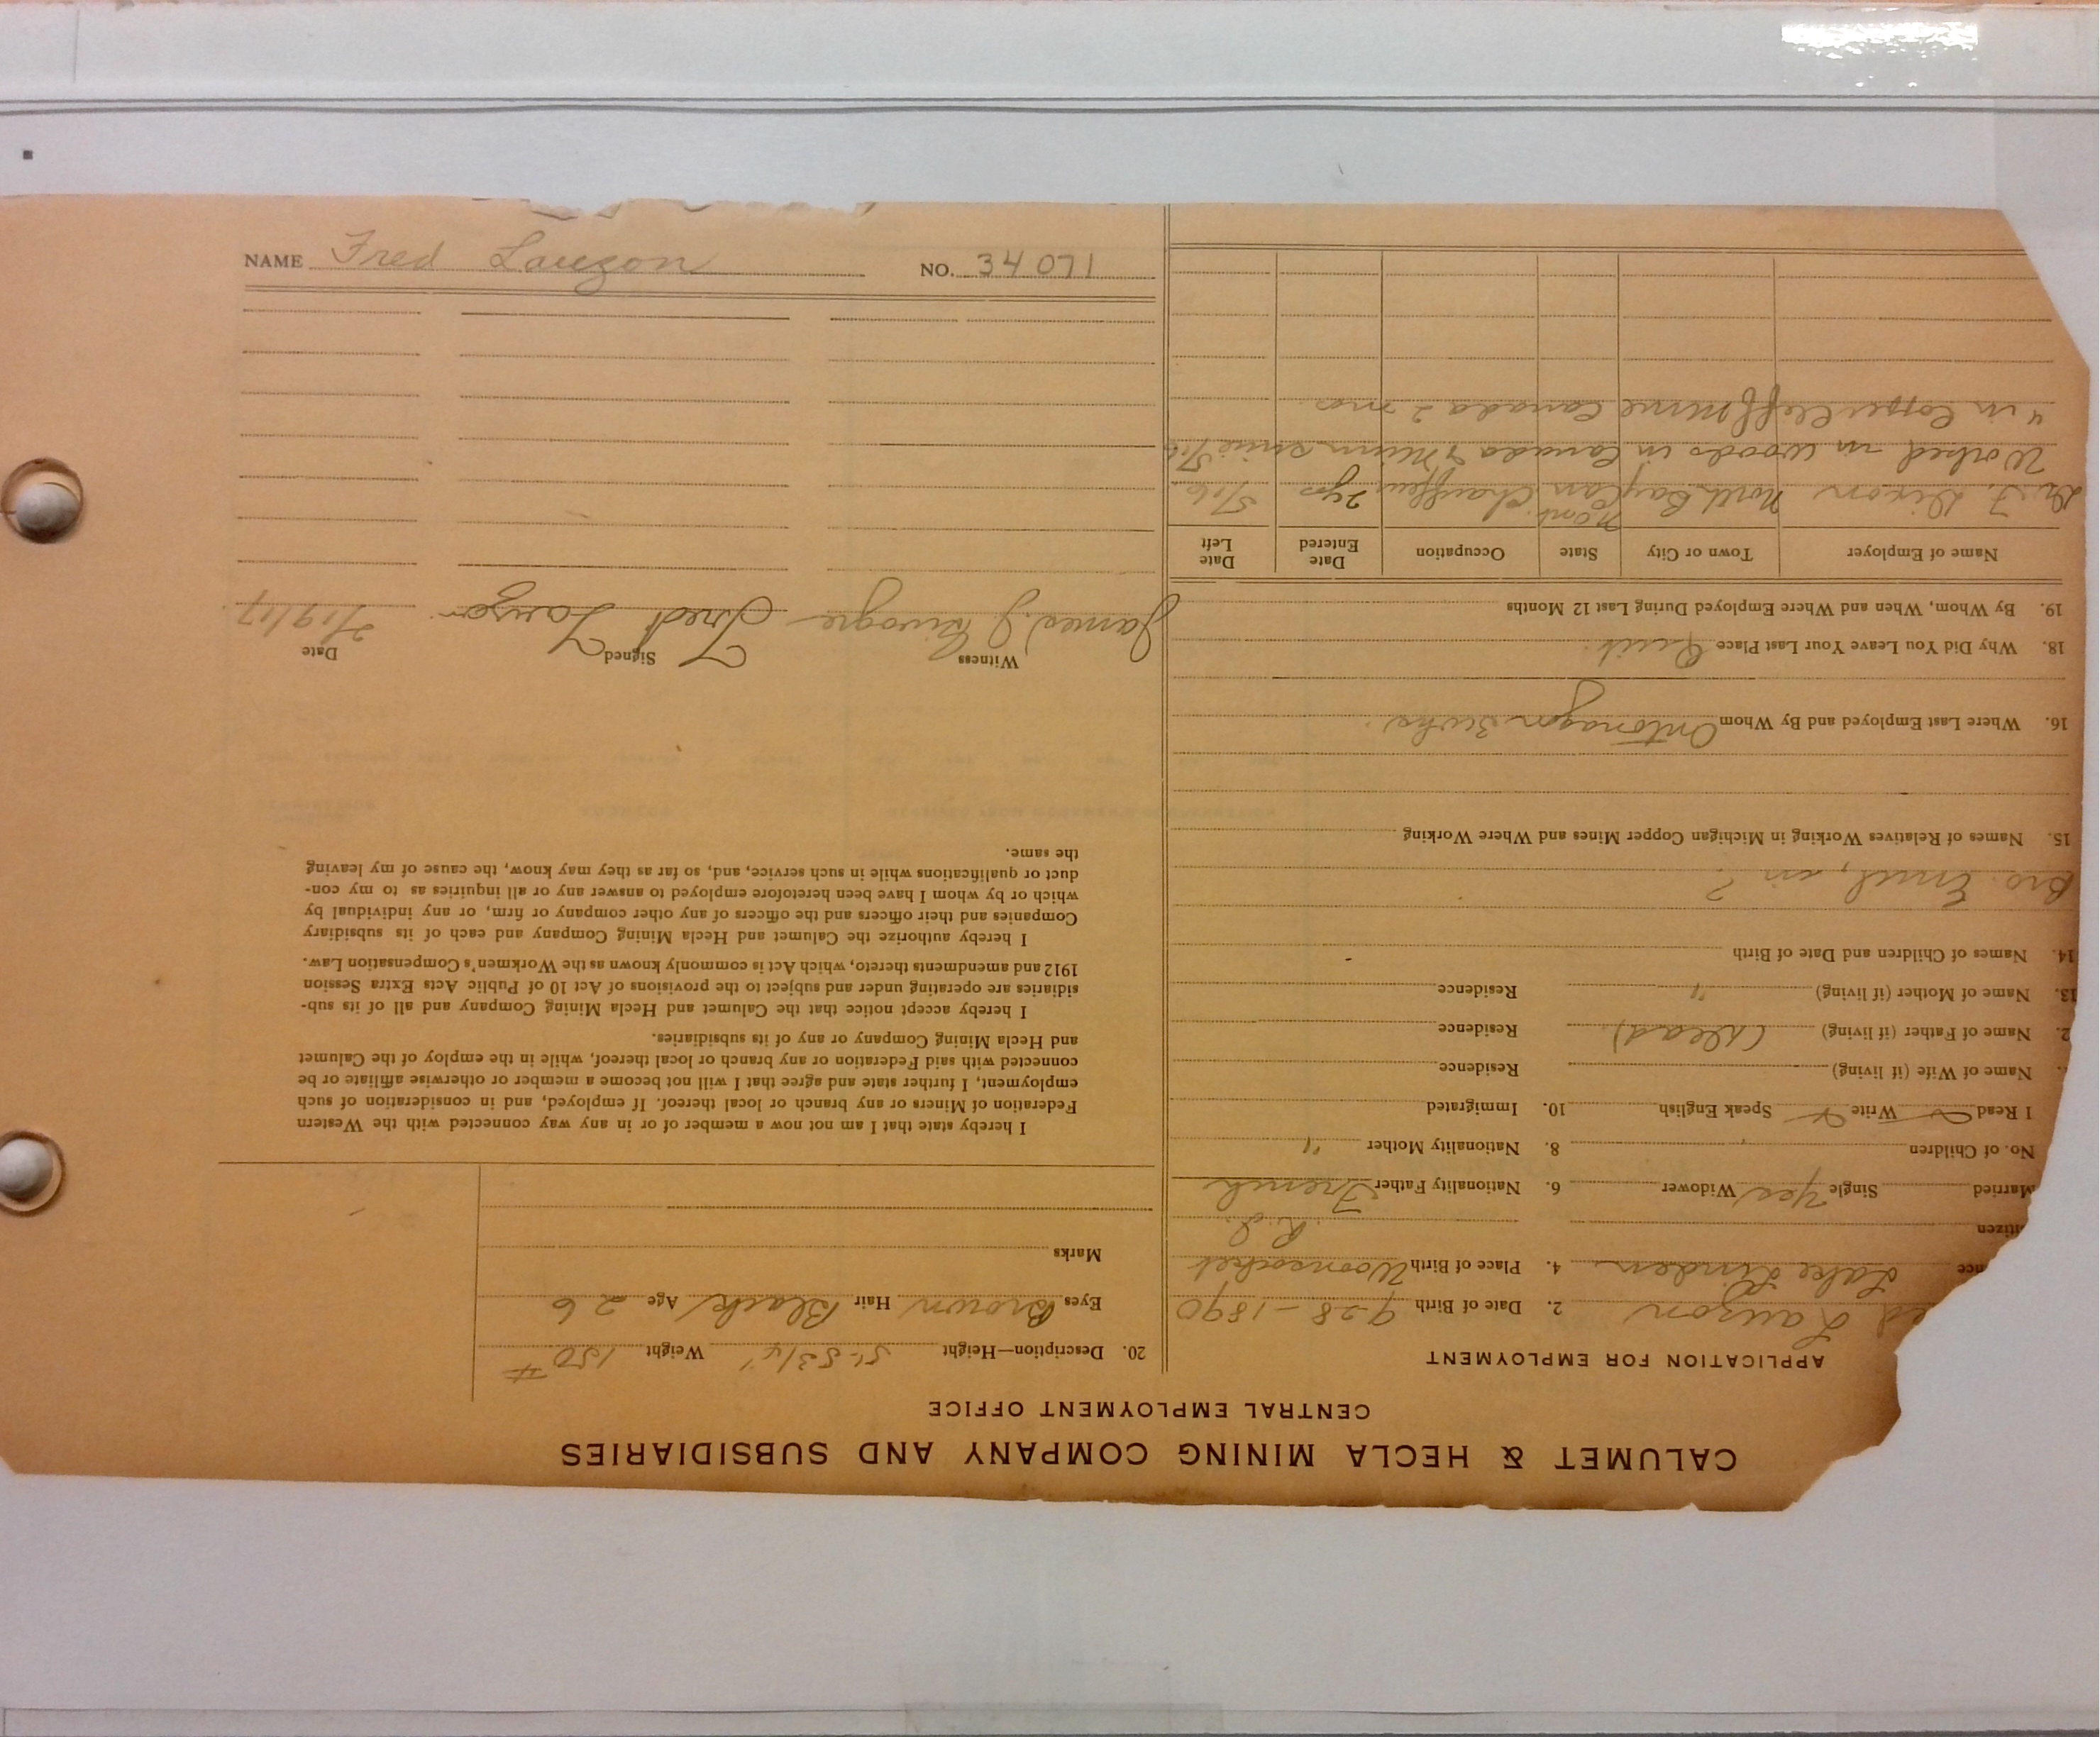 NAME Fred Lauzon NO. 34071
CALUMET & HECLA MINING COMPANY AND SUBSIDIARIES
CENTRAL EMPLOYMENT OFFICE
APPLICATION FOR EMPLOYMENT
ed Lauzon 2. Date of Birth 9-28-1890
nce Lake Linden 4. Place of Birth Woonsocket
itizen R.I.
Married Single Yes Widower 6. Nationality Father French
No. of Children 8. Nationality Mother "
I Read Write Speak English 10. Immigrated
Name of Wife (if living) Residence
2. Name of Father (if living) (Dead) Residence
13. Name of Mother (if living) " Residence
14. Names of Children and Date of Birth
Bro. Emil, in ?
15. Names of Relatives Working in Michigan Copper Mines and Where Working
16. Where Last Employed and By Whom Ontonagon
18. Why Did You Leave Your Last Place Quit.
19. By Whom, When and Where Employed During Last 12 Months
Name of Employer Town or City State Occupation Date Entered Date Left
Dr. F. Dixon North Bay Can Chauffeur 2 yrs 5/16
Worked in woods in Canada & Minn since 5/16
" in Coppercliff mine Canada 2 mos.
20. Description—Height 5'-5 3/4" Weight 150 #
Eyes Brown Hair Black Age 26
Marks
I hereby state that I am not now a member of or in any way connected with the Western
Federation of Miners or any branch or local thereof. If employed, and in consideration of such
employment, I further state and agree that I will not become a member or otherwise affiliate or be
connected with said Federation or any branch or local thereof, while in the employ of the Calumet
and Hecla Mining Company or any of its subsidiaries.
I hereby accept notice that the Calumet and Hecla Mining Company and all of its sub-
sidiaries are operating under and subject to the provisions of Act 10 of Public Acts Extra Session
1912 and amendments thereto, which Act is commonly known as the Workmen's Compensation Law.
I hereby authorize the Calumet and Hecla Mining Company and each of its subsidiary
Companies and their officers and the officers of any other company or firm, or any individual by
which or by whom I have been heretofore employed to answer any or all inquiries as to my con-
duct or qualifications while in such service, and, so far as they may know, the cause of my leaving
the same.
Witness Signed Date
James J. Fred Lauzon 2/19/17